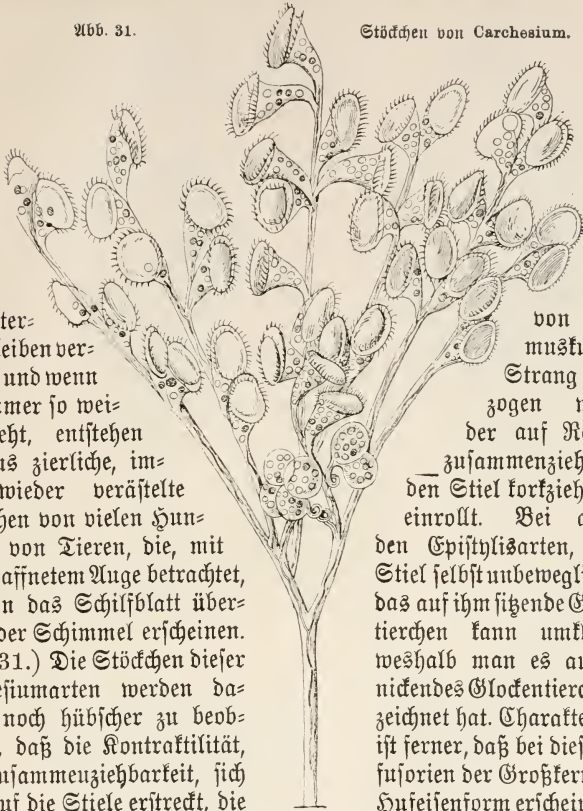 Abb. 31.
Stöckchen von Carchesium.
ter=
eiben ver=
und wenn
mer so wei=
eht, entstehen
us zierliche, im=
wieder verästelte
hen von vielen Hun=
von Tieren, die, mit
affnetem Auge betrachtet,
n das Schilfblatt über=
der Schimmel erscheinen.
31.) Die Stöckchen dieser
esiumarten werden da=
noch hübscher zu beob=
, daß die Kontraktilität,
usammenziehbarkeit, sich
uf die Stiele erstreckt, die
von
musku
Strang
zogen
der auf Re
zusammenzieh
den Stiel korkzieh
einrollt. Bei
den Epistylisarten,
Stiel selbst unbewegli
das auf ihm sitzende G
tierchen kann umk
weshalb man es au
nickendes Glockentierc
zeichnet hat. Charakte
ist ferner, daß bei dies
fusorien der Großkern
Hufeisenform erschein